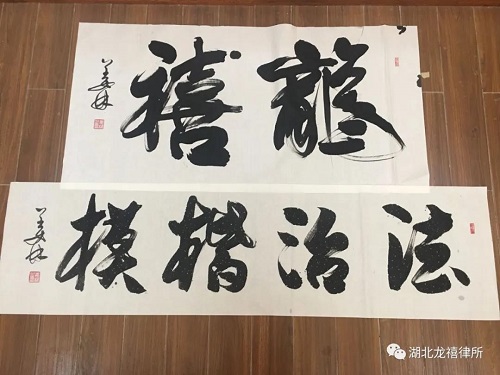 龍禧
法治楷模
湖北龙禧律所